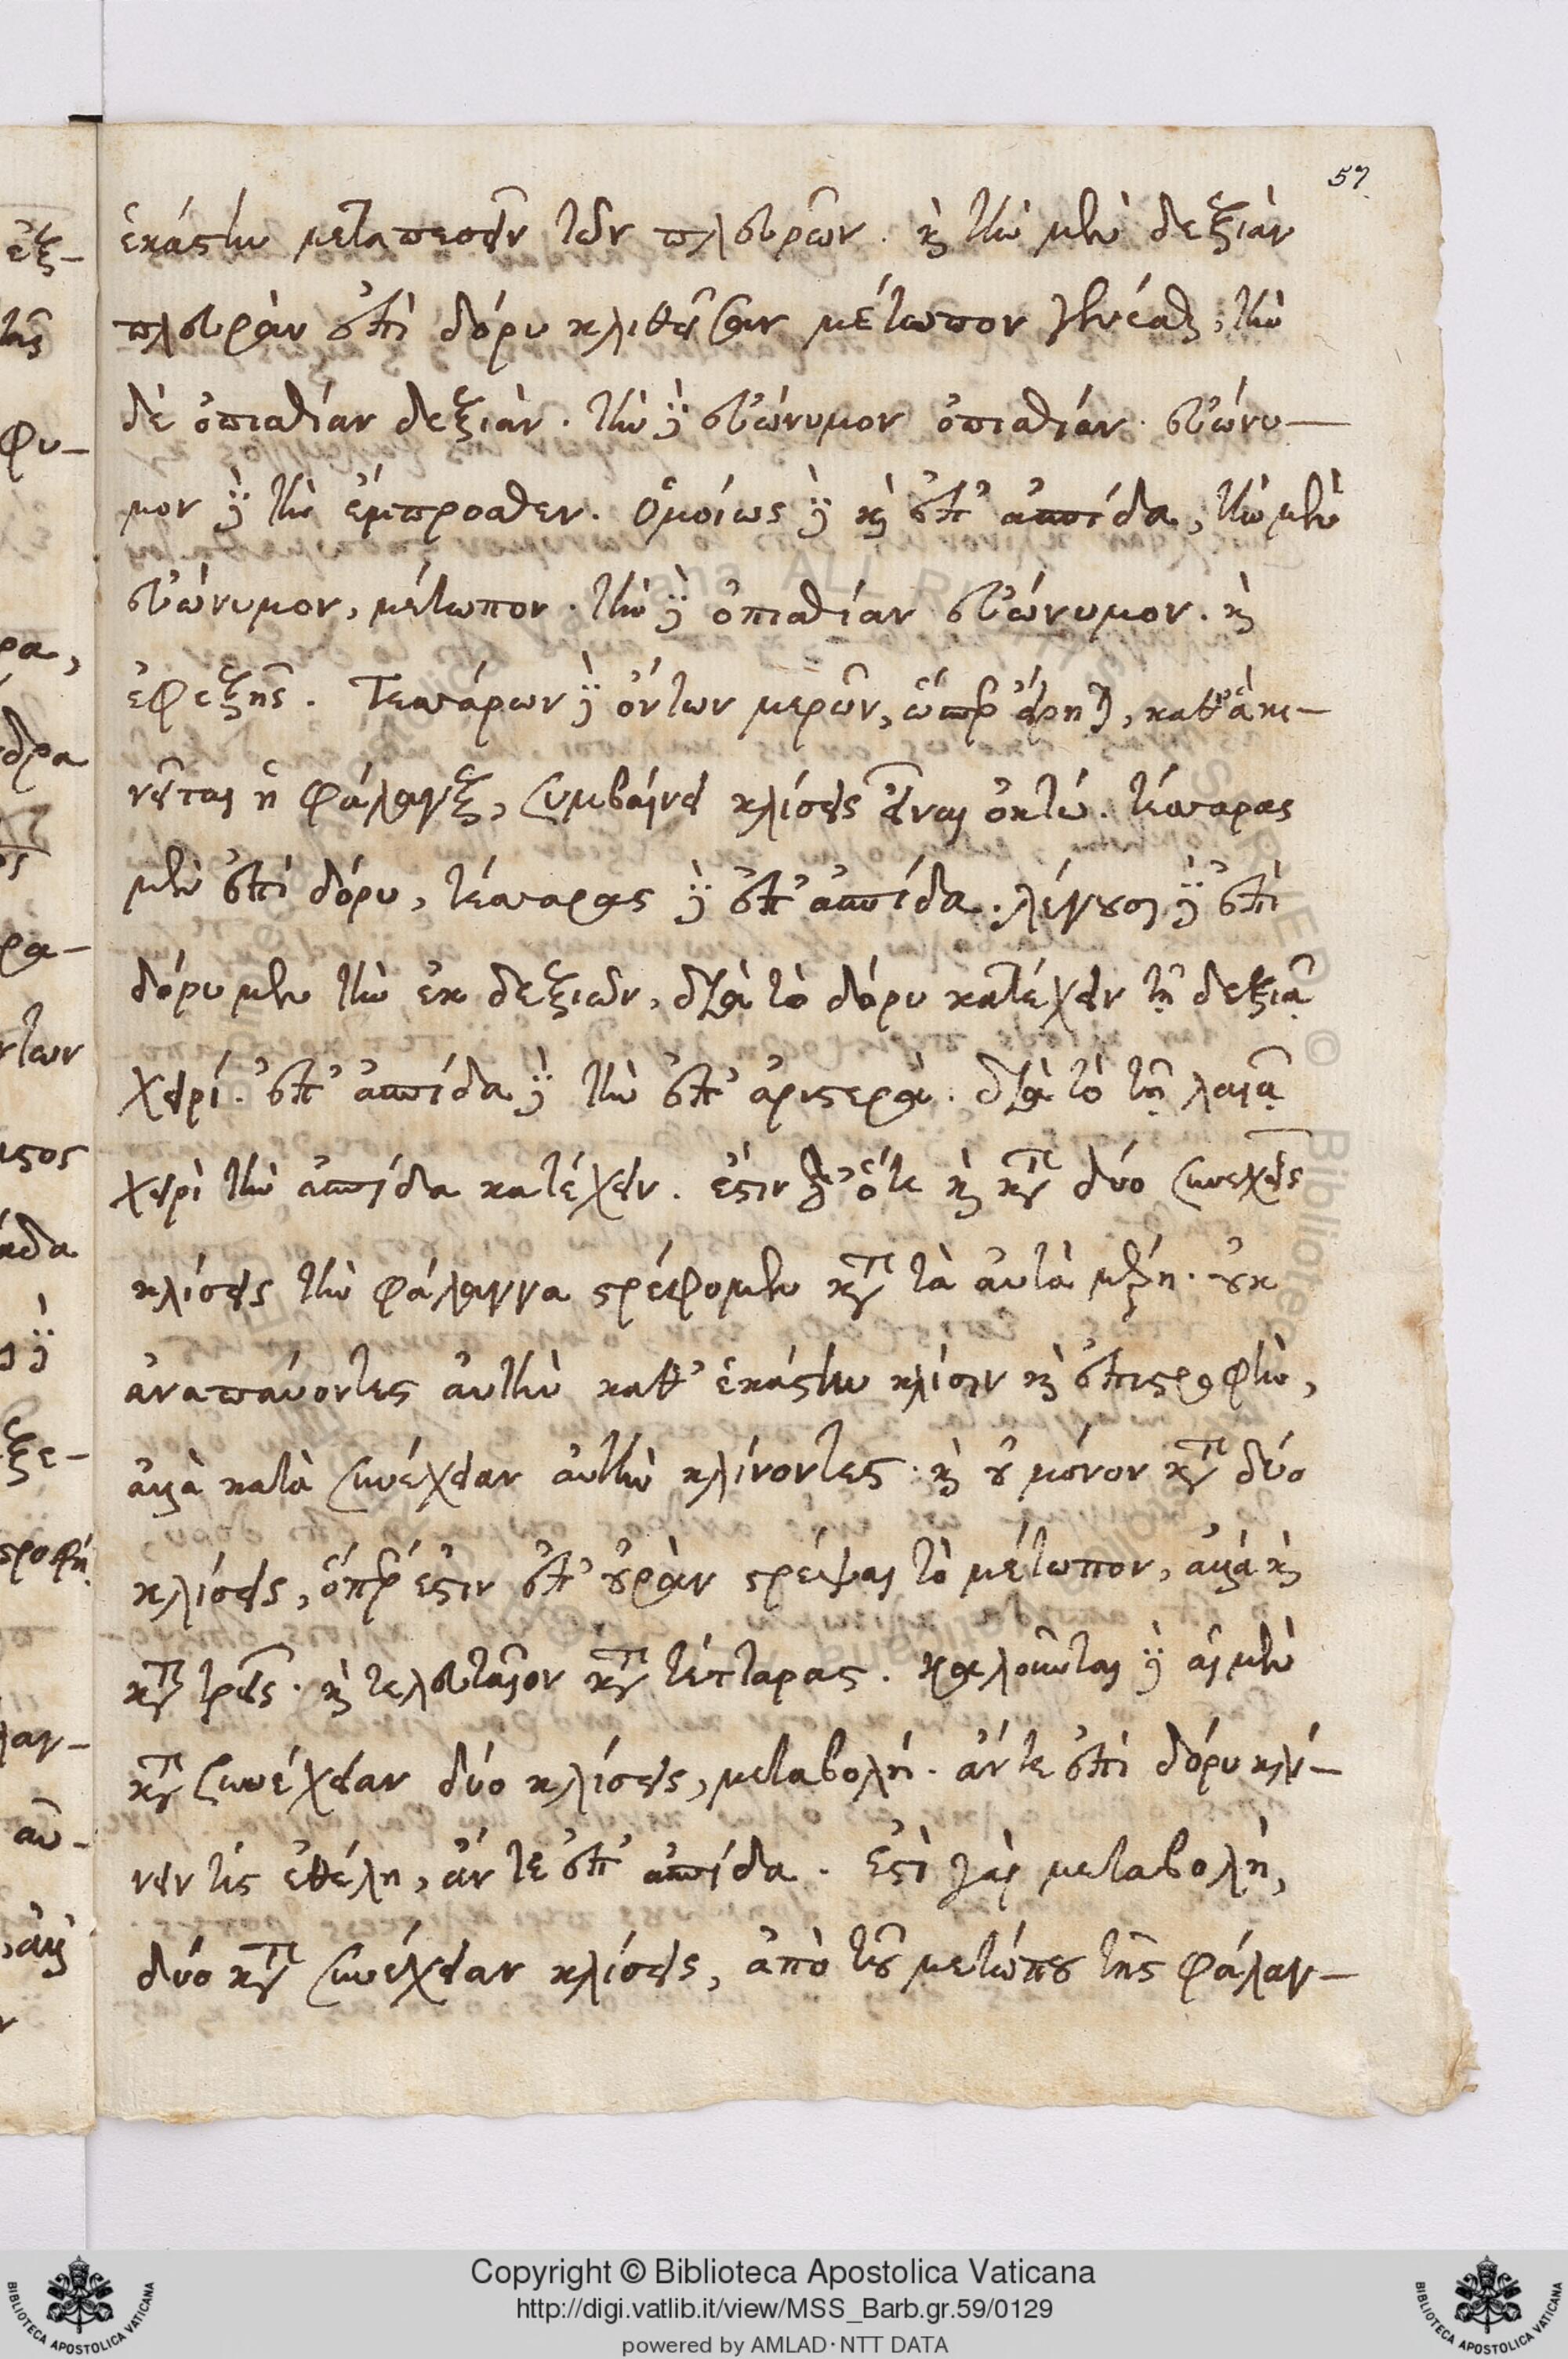 57
ἑκάστην μεταπεσεῖν τῶν πλευρῶν. καὶ τὴν μὲν δεξιὰν
πλευρὰν ἐπὶ δόρυ κλιθεῖσαν μέτωπον γενέσθαι, τὴν
δὲ ὀπισθίαν δεξιάν. τὴν δὲ εὐώνυμον ὀπισθίαν. εὐώνυ-
μον δὲ τὴν ἔμπροσθεν. Ὁμοίως δὲ καὶ ἐπ' ἀσπίδα, τὴν μὲν
εὐώνυμον, μέτωπον. τὴν δὲ ὀπισθίαν εὐώνυμον. καὶ
ἐφεξῆς. Τεσσάρων δὲ ὄντων μερῶν, ὥσπερ εἴρηται, καθ' ἃ κι-
νεῖται ἡ φάλαγξ, συμβαίνει κλίσεις εἶναι ὀκτώ. τέσσαρας
μὲν ἐπὶ δόρυ, τέσσαρας δὲ ἐπ' ἀσπίδα. λέγουσι δὲ ἐπὶ
δόρυ μὲν τὴν ἐκ δεξιῶν, διὰ τὸ δόρυ κατέχειν τῇ δεξιᾷ
χειρί. ἐπ' ἀσπίδα δὲ τὴν ἐπ' ἀριστερὰν. διὰ τὸ τῇ λαιᾷ
χειρὶ τὴν ἀσπίδα κατέχειν. ἔστιν δ' ὅτε καὶ κατὰ δύο συνεχεῖς
κλίσεις τὴν φάλαγγα στρέφομεν κατὰ τὰ αὐτὰ μέρη. οὐκ
ἀναπαύοντες αὐτὴν καθ' ἑκάστην κλίσιν καὶ ἐπιστροφὴν,
ἀλλὰ κατὰ συνέχειαν αὐτὴν κλίνοντες. καὶ οὐ μόνον κατὰ δύο
κλίσεις, ὅπερ ἐστὶν ἐπ' οὐρὰν στρέψαι τὸ μέτωπον, ἀλλὰ καὶ
κατὰ τρεῖς. καὶ τελευταῖον κατὰ τέτταρας. καλοῦνται δὲ αἱ μὲν
κατὰ συνέχειαν δύο κλίσεις, μεταβολή. ἄν τε ἐπὶ δόρυ κλί-
νειν τίς ἐθέλῃ, ἄν τε ἐπ' ἀσπίδα. Ἔστι γὰρ μεταβολὴ,
δύο κατὰ συνέχειαν κλίσεις, ἀπὸ τοῦ μετώπου τῆς φάλαγ-
Copyright © Biblioteca Apostolica Vaticana
http://digi.vatlib.it/view/MSS_Barb.gr.59/0129
powered by AMLAD·NTT DATA